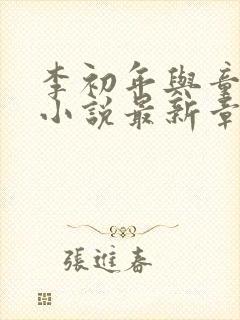 李初年與童
小說最新章
張進春